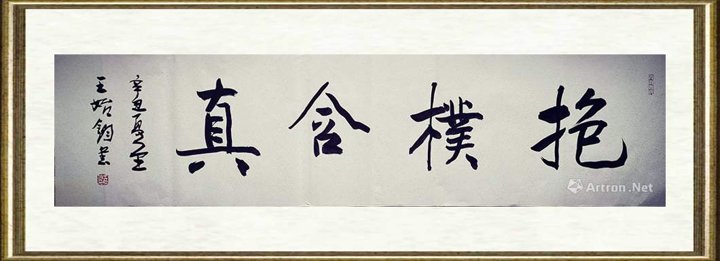 抱樸含真
辛丑夏至
王始鈞書
Artron.Net